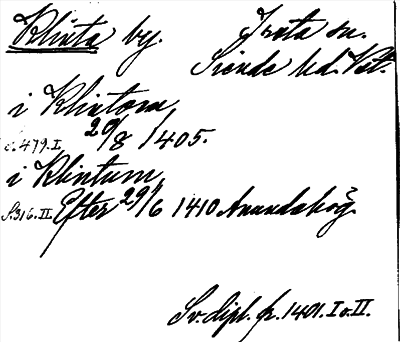 Klinta by. Irsta sn.
Siende hd. Vstm.
i Klintom
s. 479. I. 20/8 1405.
i Klintum
S. 316. II. Efter 29/6 1410 Anundahög.
Sv. dipl. fr. 1401. I o. II.